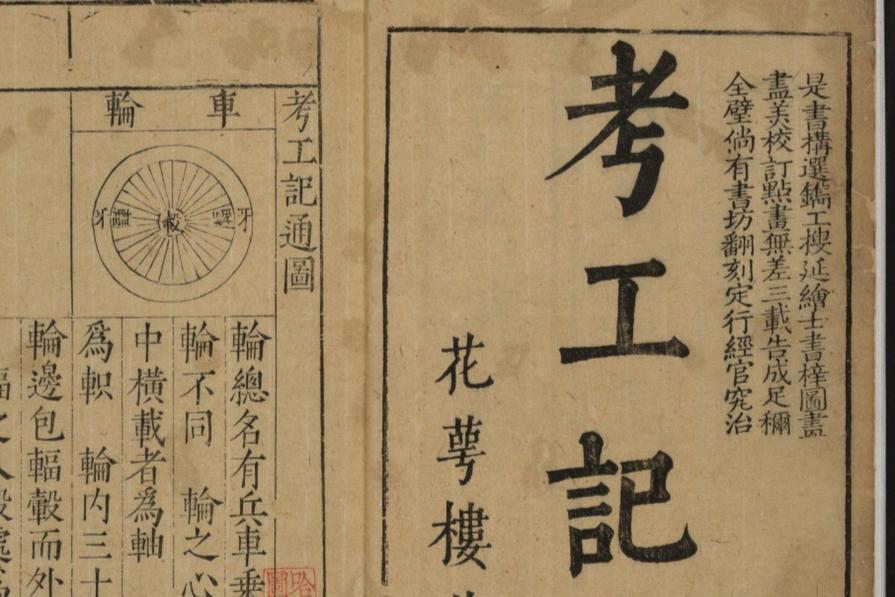 是書構選鐫工搜延繪士書梓圖畫
盡美校訂點畫無差三載告成足稱
全璧倘有書坊翻刻定行經官究治
考工記
花萼樓
考工記通圖
車輪
牙
輻
轂
輻
牙
輪總名有兵車乗
輪不同 輪之心
中橫載者爲軸
爲軹 輪内三十
輪邊包輻轂而外